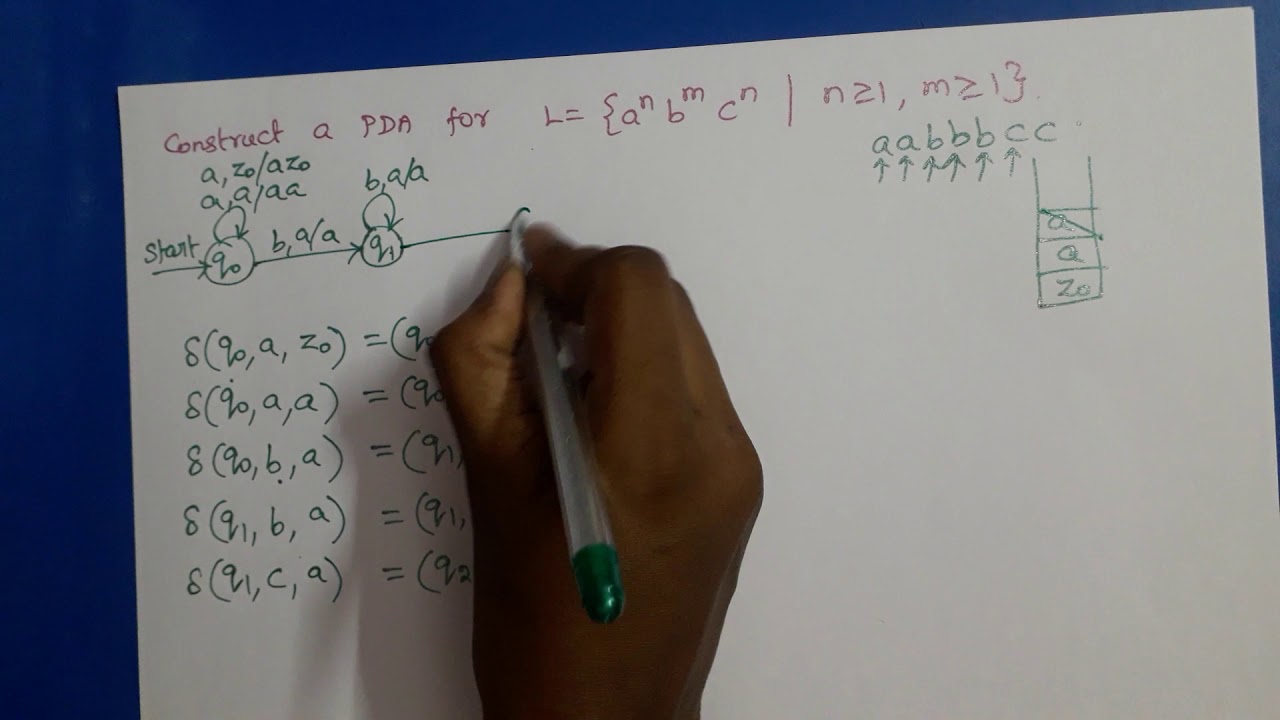 Construct a PDA for L= {aⁿ bᵐ cⁿ | n≥1, m≥1}.
aabbbcc
a, z0/az0
a, a/aa
b, a/a
Start
q0
b, a/a
q1
a
a
z0
δ(q0, a, z0) = (q0
δ(q0, a, a) = (q0
δ(q0, b, a) = (q1,
δ(q1, b, a) = (q1,
δ(q1, c, a) = (q2